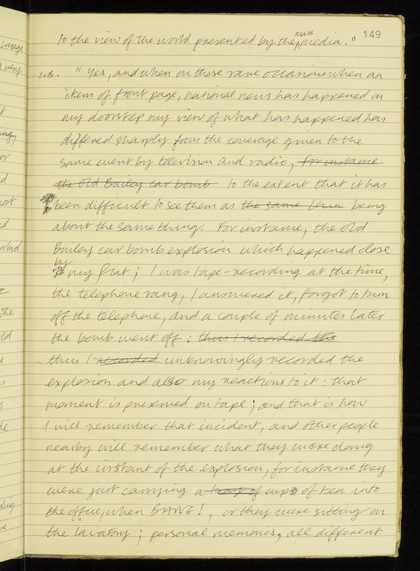 149
to the view of the world presented by the news media."
"Yes, and when on those rare occasions when an
item of front page, national news has happened on
my doorstep my view of what has happened has
differed sharply from the coverage given to the
same event by television and radio, for instance
the Old Bailey car bomb to the extent that it has
been difficult to see them as the same being
about the same thing. For instance, the Old
Bailey car bomb explosion which happened close
by my flat; I was tape-recording at the time,
the telephone rang, I answered it, forgot to turn
off the telephone, and a couple of minutes later
the bomb went off: thus I recorded the
thus I recorded unknowingly recorded the
explosion and also my reactions to it: that
moment is preserved on tape; and that is how
I will remember that incident, and other people
nearby will remember what they were doing
at the instant of the explosion, for instance they
were just carrying a cups of tea into
the office, when BANG!, or they were sitting on
the lavatory; personal memories, all different